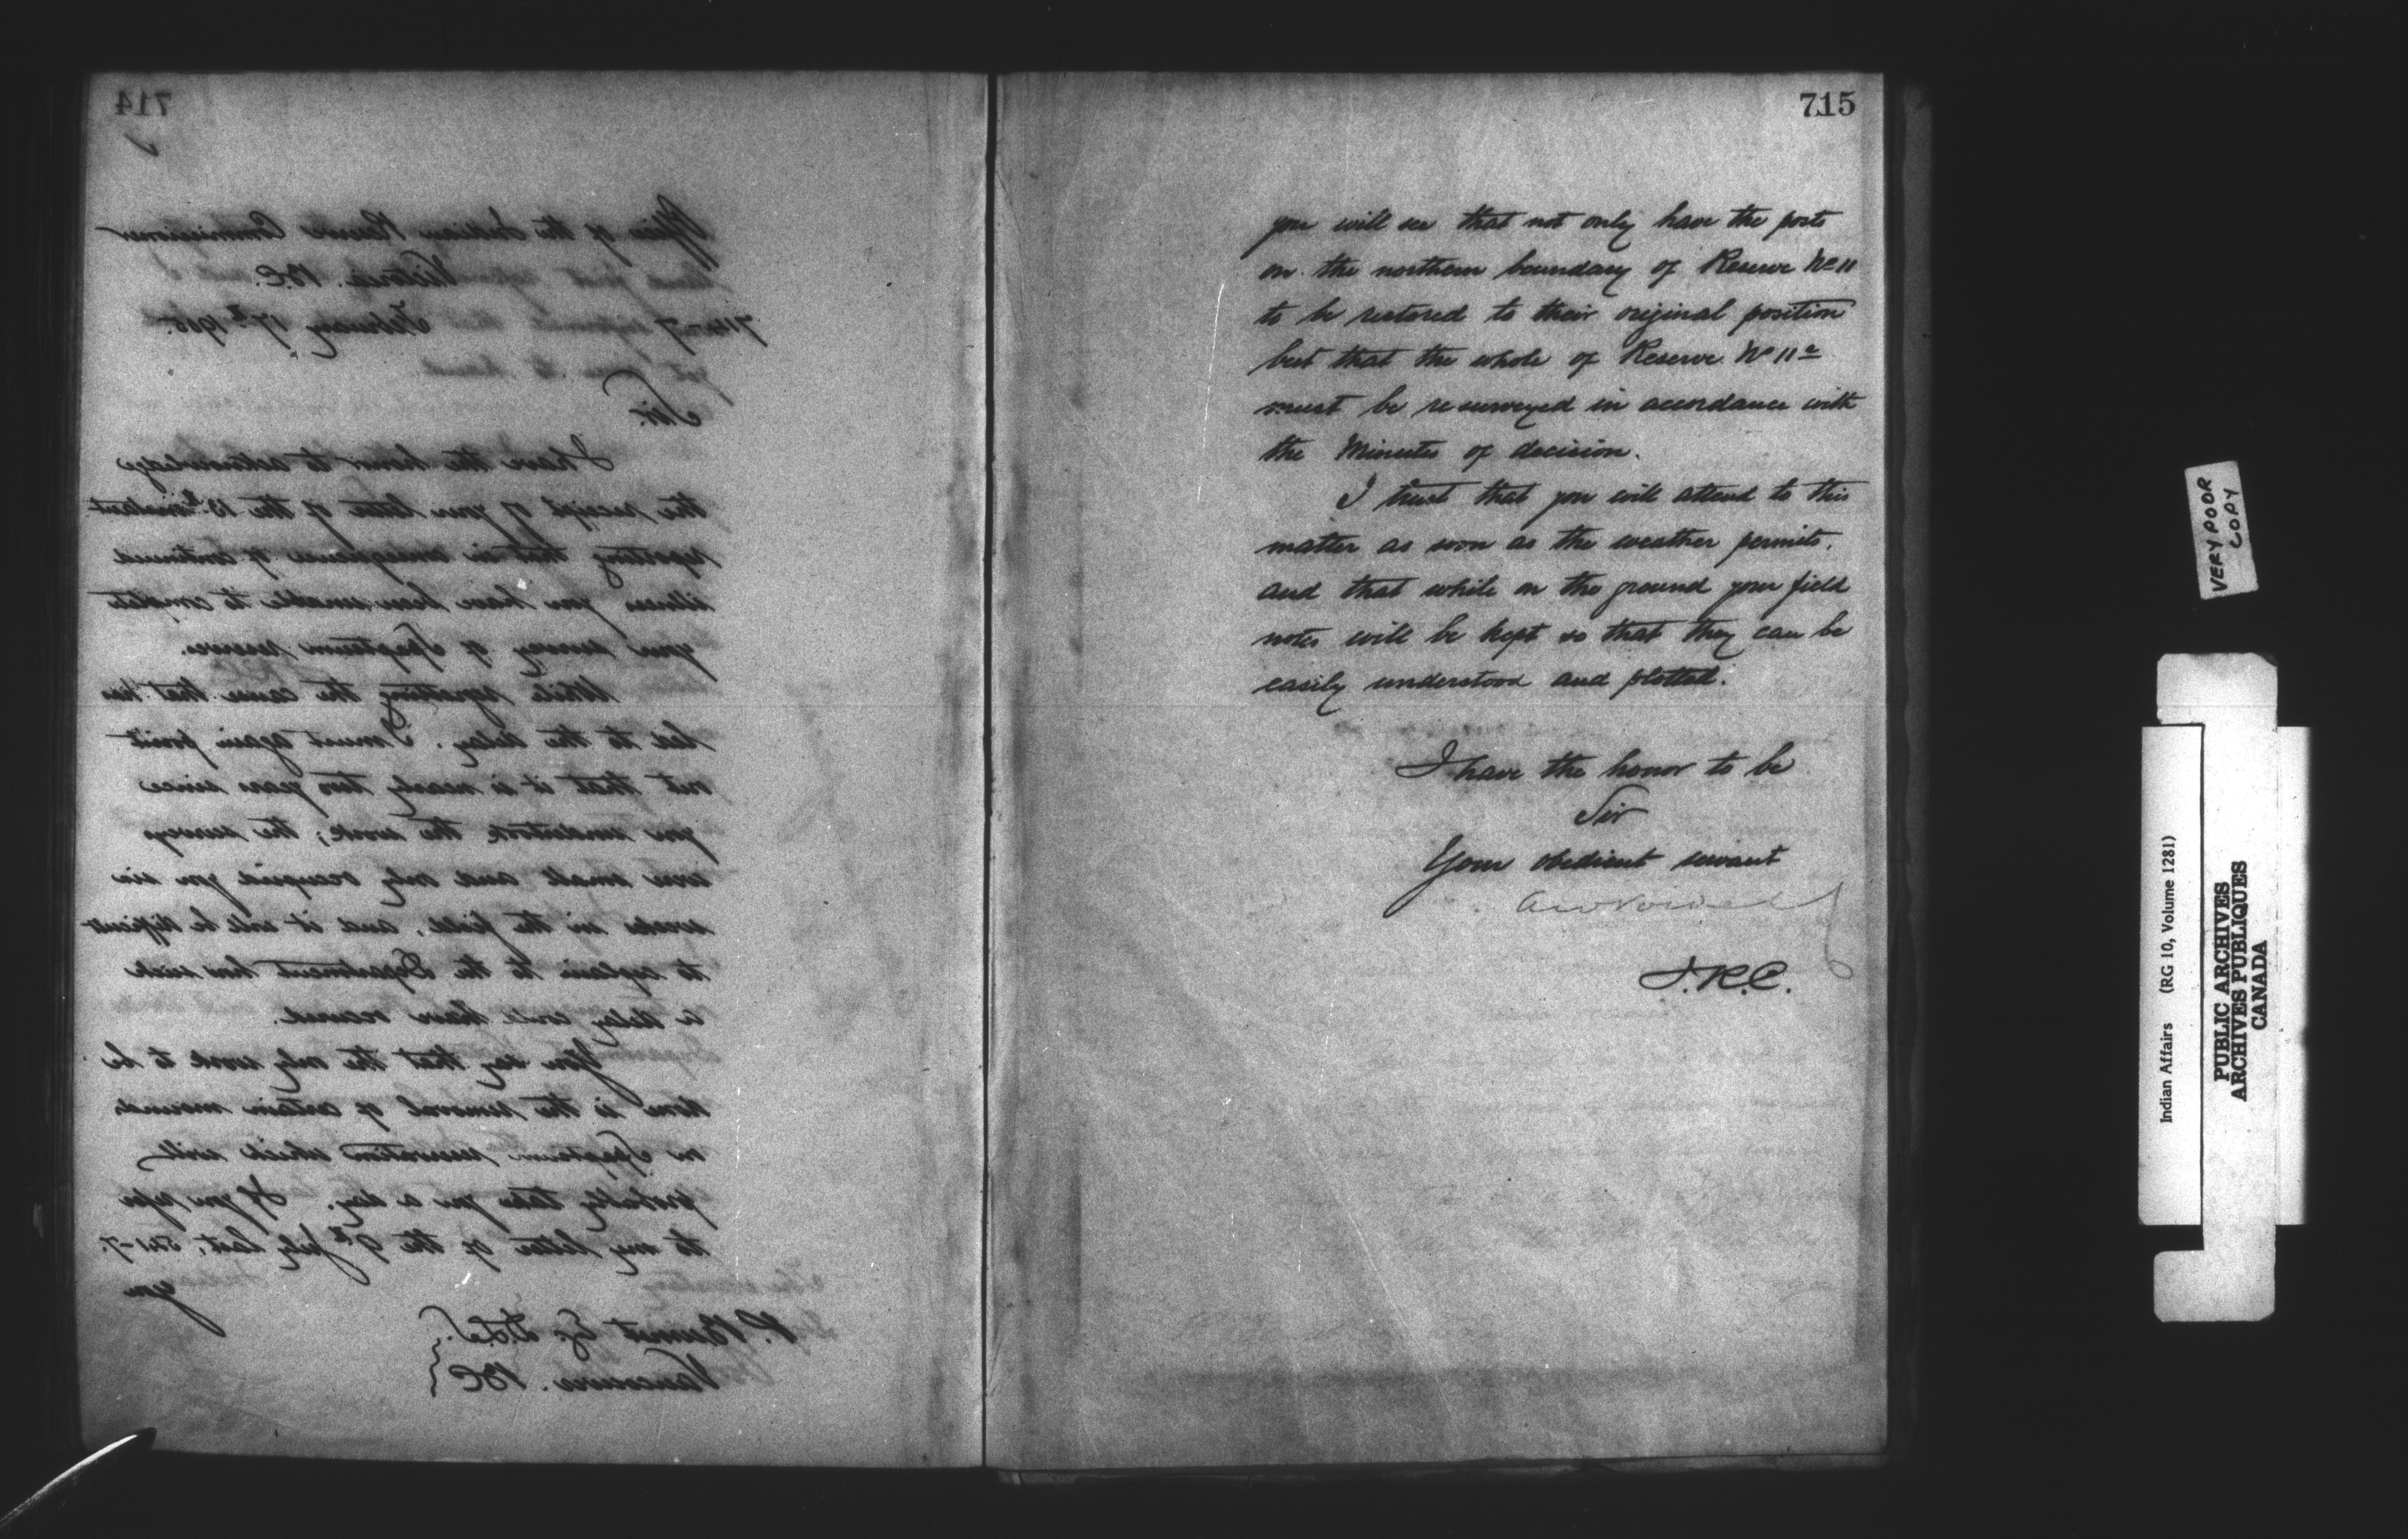 714
Office of the Indian Reserve Commissioner
Victoria. B.C.
714-7 February 17th 1905.
Sir.
I have the honor to acknowledge
the receipt of your letter of the 13th instant
reporting that in consequence of continued
illness you have been unable to complete
your survey of Spaptsum reserve.
While regretting the cause that has
led to the delay. I must again point
out that it is nearly two years since
you undertook the work; the surveys
were small and only occupied you six
weeks in the field, and it will be difficult
to explain to the Department how such
a delay could have occured.
You say that the only work to be
done is the removal of certain mounds
on Spaptsum reservation which will
probably take you a day. If you refer
to my letter of the 9th July last, 541-7.
you
P. Burnet Esq. D.L.S.
Vancouver. BC
715
you will see that not only have the posts
on the northern boundary of Reserve No 11
to be restored to their original position
but that the whole of Reserve No 11a
must be resurveyed in accordance with
the Minutes of decision.
I trust that you will attend to this
matter as soon as the weather permits.
and that while on the ground your field
notes will be kept so that they can be
easily understood and plotted.
I have the honor to be
Sir
Your obedient servant
A W Vowell
I.R.C.
VERY POOR
COPY
Indian Affairs (RG 10, Volume 1281)
PUBLIC ARCHIVES
ARCHIVES PUBLIQUES
CANADA